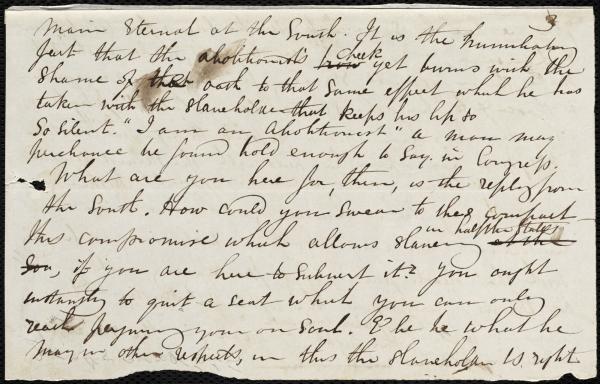 main Eternal at the South. It is the humiliating
fact that the abolitionist's cheek yet burns with the
shame of that oath to that same effect which he has
taken with the slaveholder that keeps his lips so
so silent. "I am an Abolitionist" a man may
perchance be found bold enough to say in Congress.
What are you here for, then, is the reply from
the South. How could you swear to the compact
this compromise which allows slavery in half the States
if you are here to subvert it? You ought
instantly to quit a seat which you can only
reach perjuring your own Soul. & be he what he
may in other respects, in this the slaveholder is right